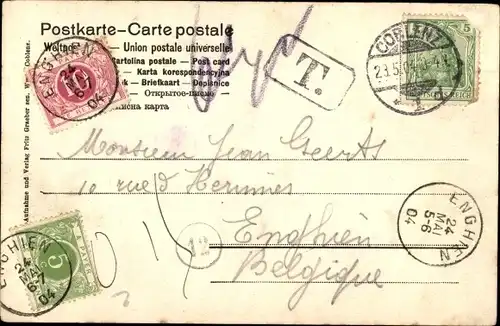 Postkarte-Carte postale
Weltpos
Union postale universelle
Cartolina postale - Post card
Karta korespondencyjna
Briefkaart - Dopisnice
Открытое-письмо
писна карта
T.
COBLENZ
5
ENGHIEN
24
04
10
Monsieur Jean Geerts
10 rue d'
Enghien
Belgique
12
ENGHIEN
24
MAI
5-6
04
ENGHIEN
04
5
A PAYER
Aufnahme und Verlag Fritz Graeber sen. Wwe. Coblenz.